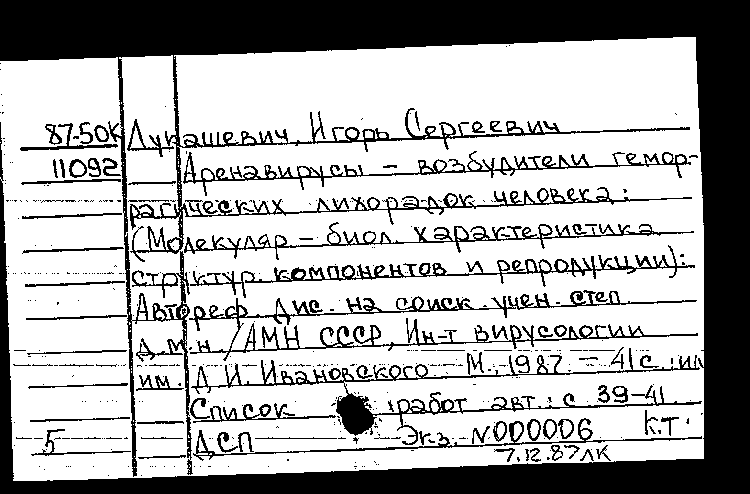 87-50К Лукашевич, Игорь Сергеевич
11092 Аренавирусы – возбудители гемор-
рагических лихорадок человека:
(Молекуляр – биол. характеристика
структур. компонентов и репродукции):
Автореф. дис. на соиск. учен. степ
д.м.н. /АМН СССР, Ин-т вирусологии
им. Д.И. Ивановского – М., 1987. – 41 с. ил
Список работ авт.: с 39-41
5 ДСП Экз. N000006 К.Т.
7.12.87 ЛК